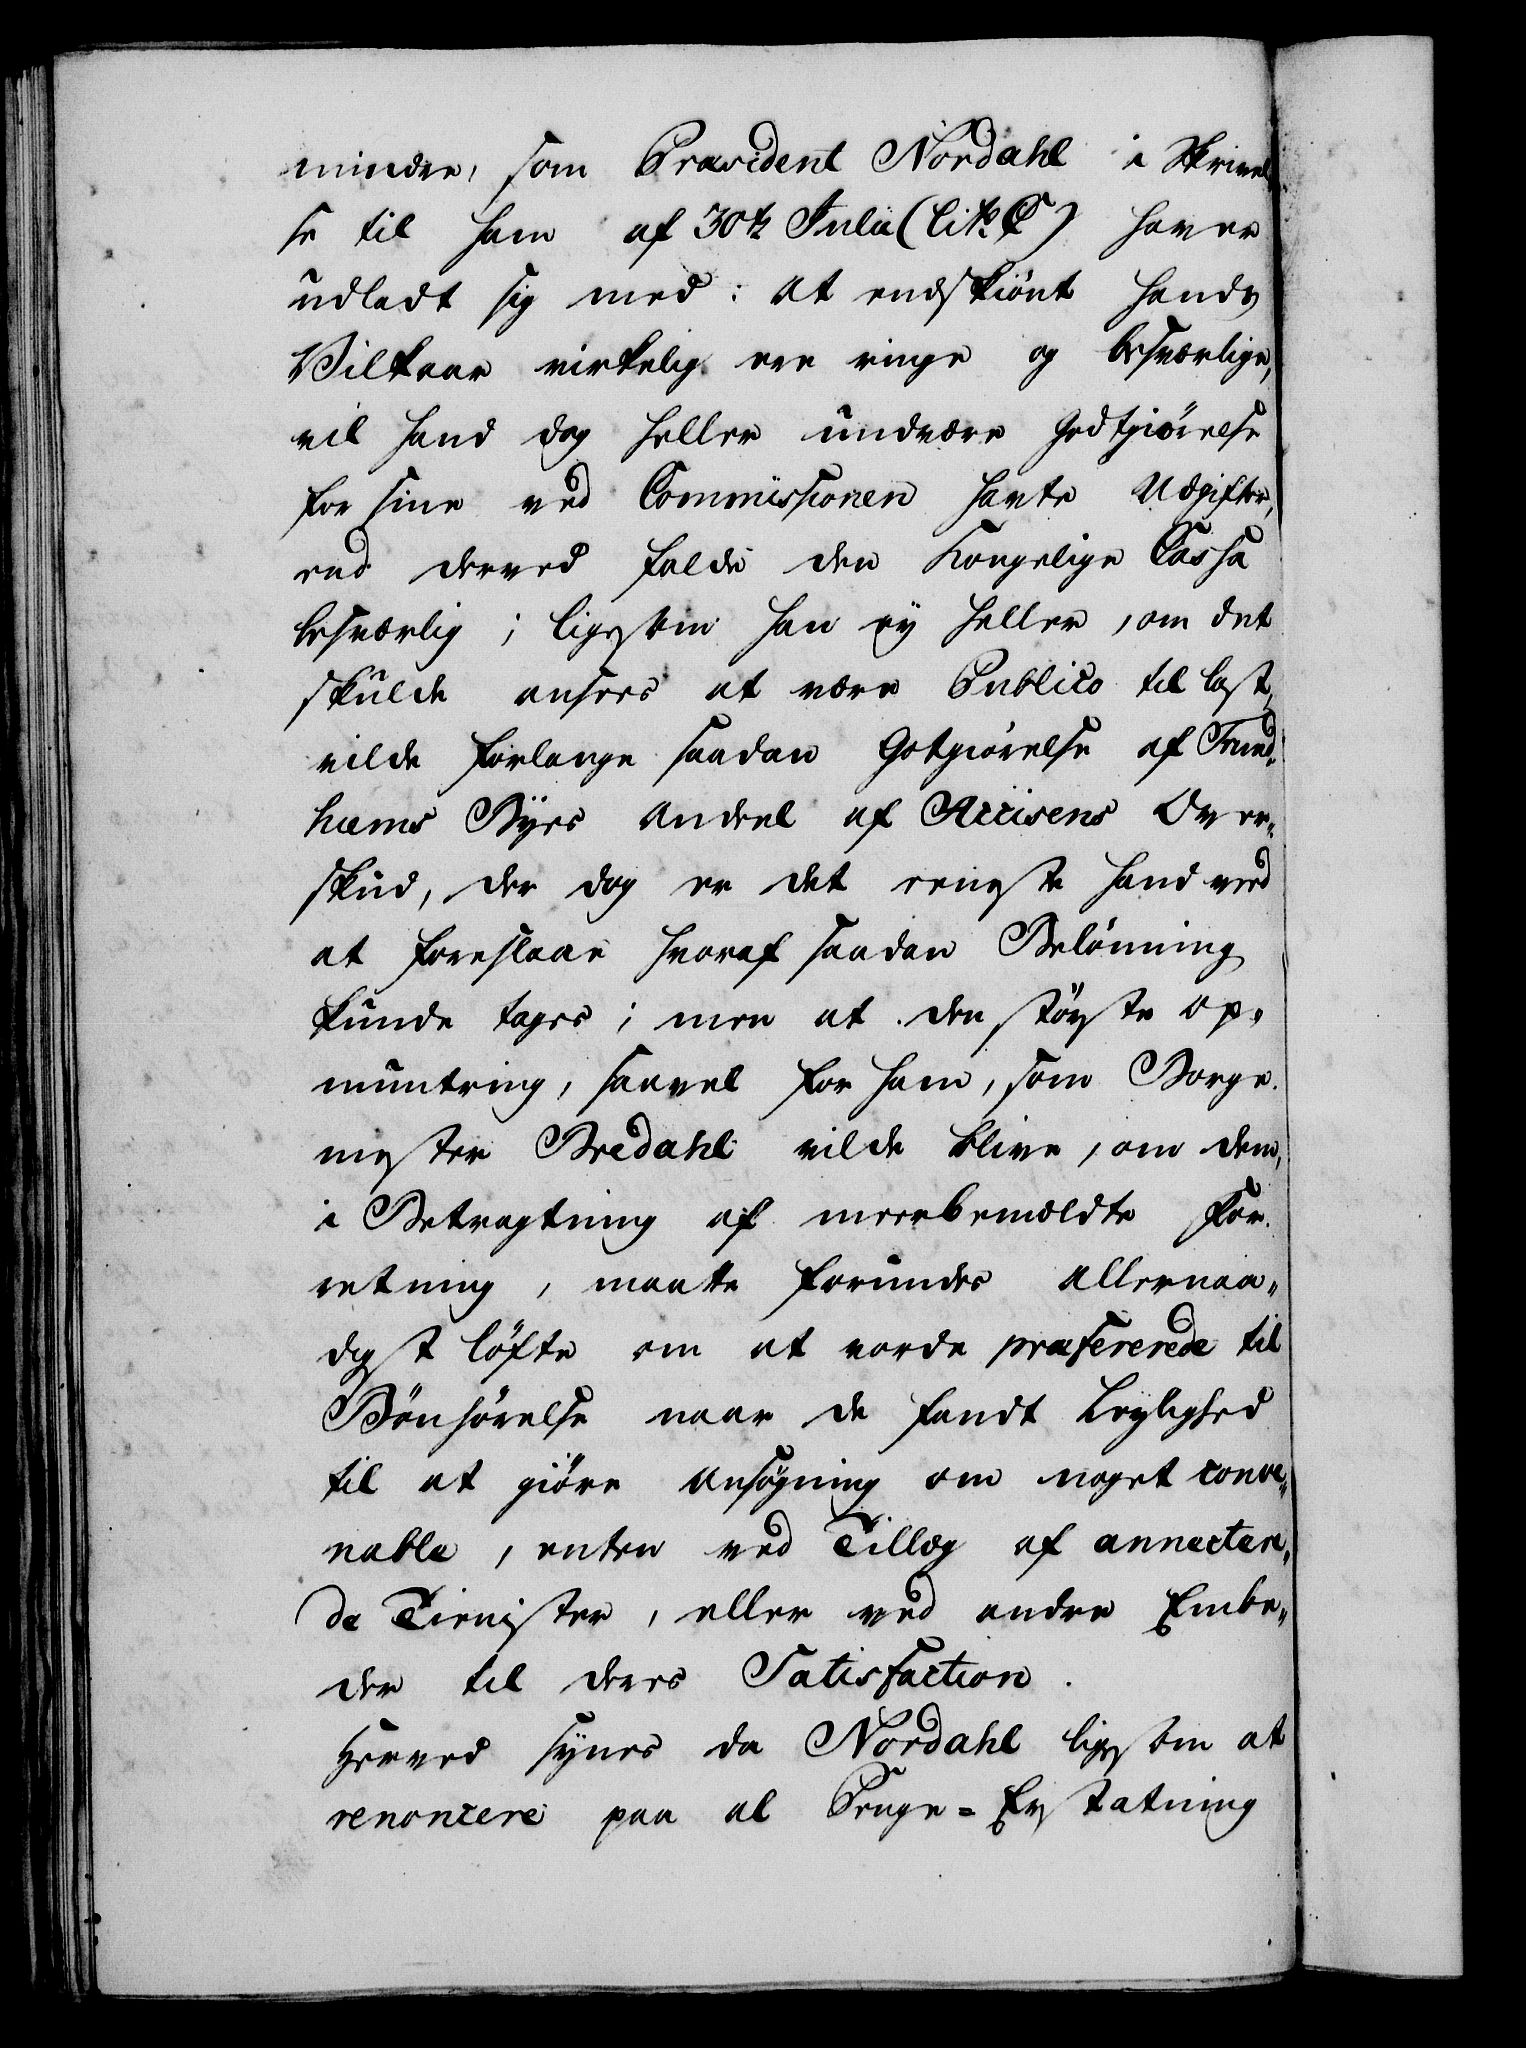 mindre, som Præsident Nordahl i Skrivel
se til ham af 30te Julii (lit. C) haver
udladt sig med: at endskiönt hands
Vilkaar virkelig ere ringe og besværlige,
vil hand dog heller undvære Godtgiörelse
for sine ved Commissionen havte Udgifter,
end derved falde den Kongelige Cassa
besværlig; ligesom han ey heller, om det
skulde ansees at være Publico til last,
vilde forlange saadan Gotgiörelse af Trund-
hæms Byes Andeel af Accisens Over-
skud, der dog er det eeneste hand veed
at foreslaae hvoraf saadan Belönning
kunde tages; men at den störste Op-
muntring, saavel for ham, som Borge-
mester Bredahl vilde blive, om dem,
i Betragtning af meerbemældte For-
retning, maatte forundes allernaa-
digst löfte om at vorde præfererede til
Bönhörelse naar de fandt Leylighed
til at giöre Ansögning om noget conve-
nable, enten ved Tillæg af annectere-
de Tienister, eller ved andre Embe-
der til deres Satisfaction.
Herved synes da Nordahl ligesom at
renoncere paa al Penge-Erstatning